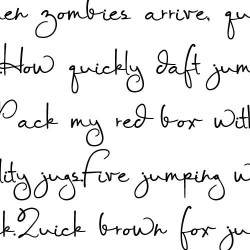 en zombies arrive, qu
How quickly daft jum
Pack my red box with
lity jugs.Five jumping w
k.Quick brown fox ju